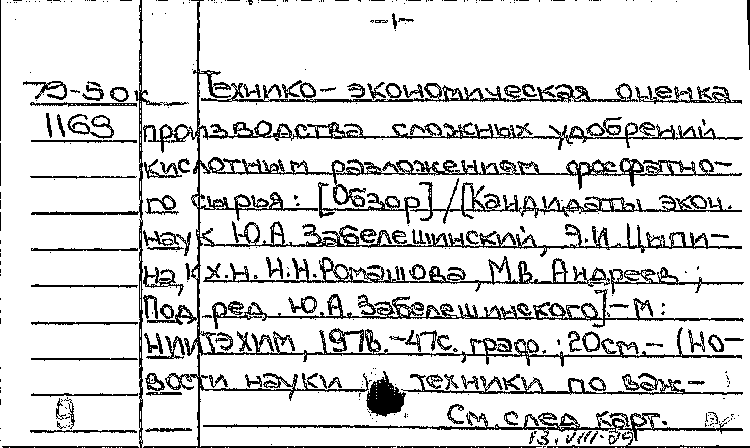 -1-
79-50к Технико-экономическая оценка
1169 производства сложных удобрений
кислотным разложением фосфатно-
го сырья: [Обзор] / [Кандидаты экон.
наук Ю.А. Забелешинский, Э.И. Цыпи-
на, к.х.н. Н.Н. Ромашова, М.В. Андреев ;
Под ред. Ю.А. Забелешинского]. - М:
НИИТЭХИМ, 1978. - 47с., граф. ; 20см. - (Но-
вости науки и техники по важ-
См. след. карт.